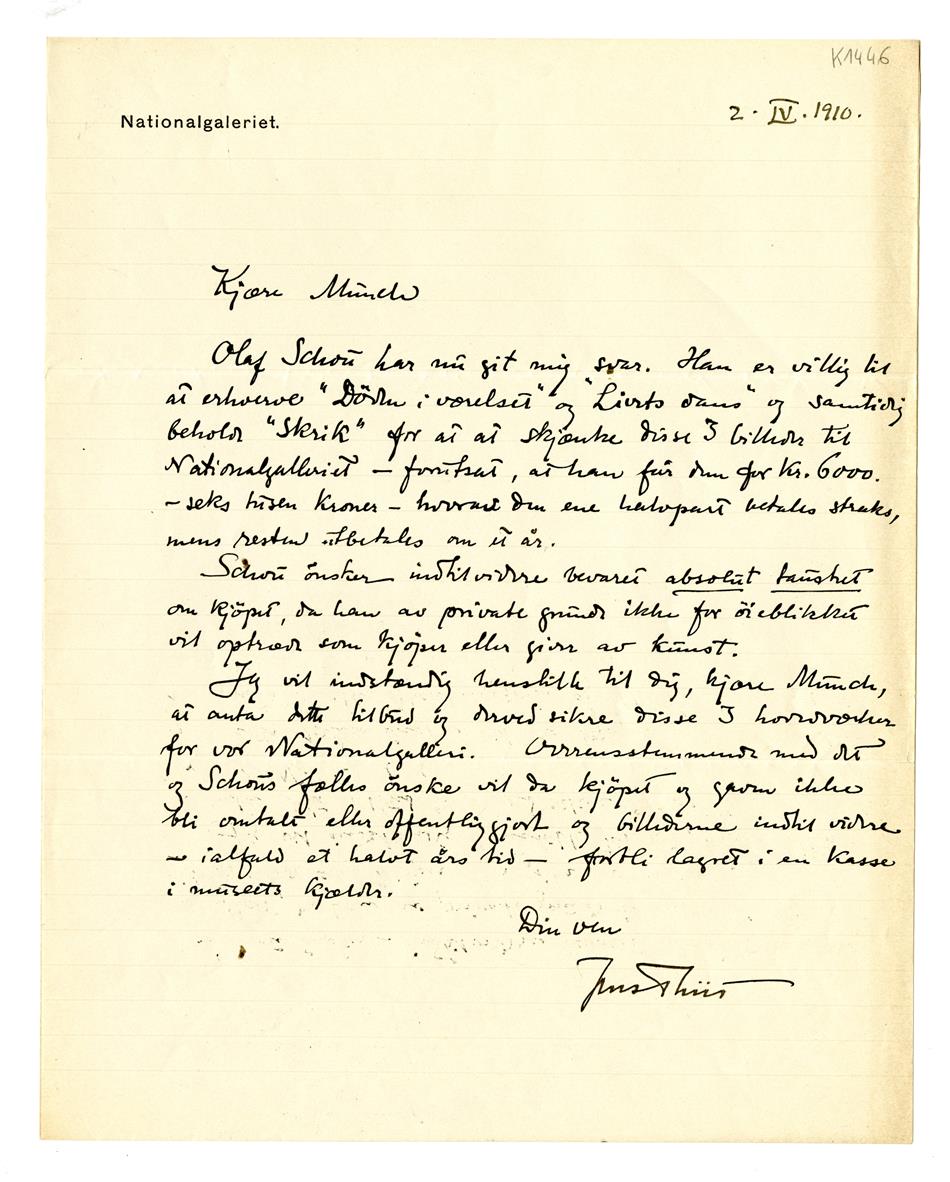 K1446
Nationalgaleriet.
2. IV. 1910.
Kjære Munch
Olaf Schou har nu git mig svar. Han er villig til
at erhverve "Döden i værelset" og "Livets dans" og samtidig
beholde "Skrik" for at at skjænke disse 3 billeder til
Nationalgalleriet – forutsat, at han får dem for Kr. 6000.
– seks tusen kroner – hvorav den ene halvpart betales straks,
mens resten utbetales om et år.
Schou önsker indtil videre bevaret absolut taushet
om kjöpet, da han av private grunde ikke for öieblikket
vil optræde som kjöper eller giver av kunst.
Jeg vil indstændig henstille til dig, kjære Munch,
at anta dette tilbud og derved sikre disse 3 hovedværker
for vor Nationalgalleri. Overensstemmende med dit
og Schous fælles önske vil da kjöpet og gaven ikke
bli omtalt eller offentliggjort og billederne indtil videre
– ialfald et halvt års tid – forbli lagret i en kasse
i museets kjælder.
Din ven
Jens Thiis